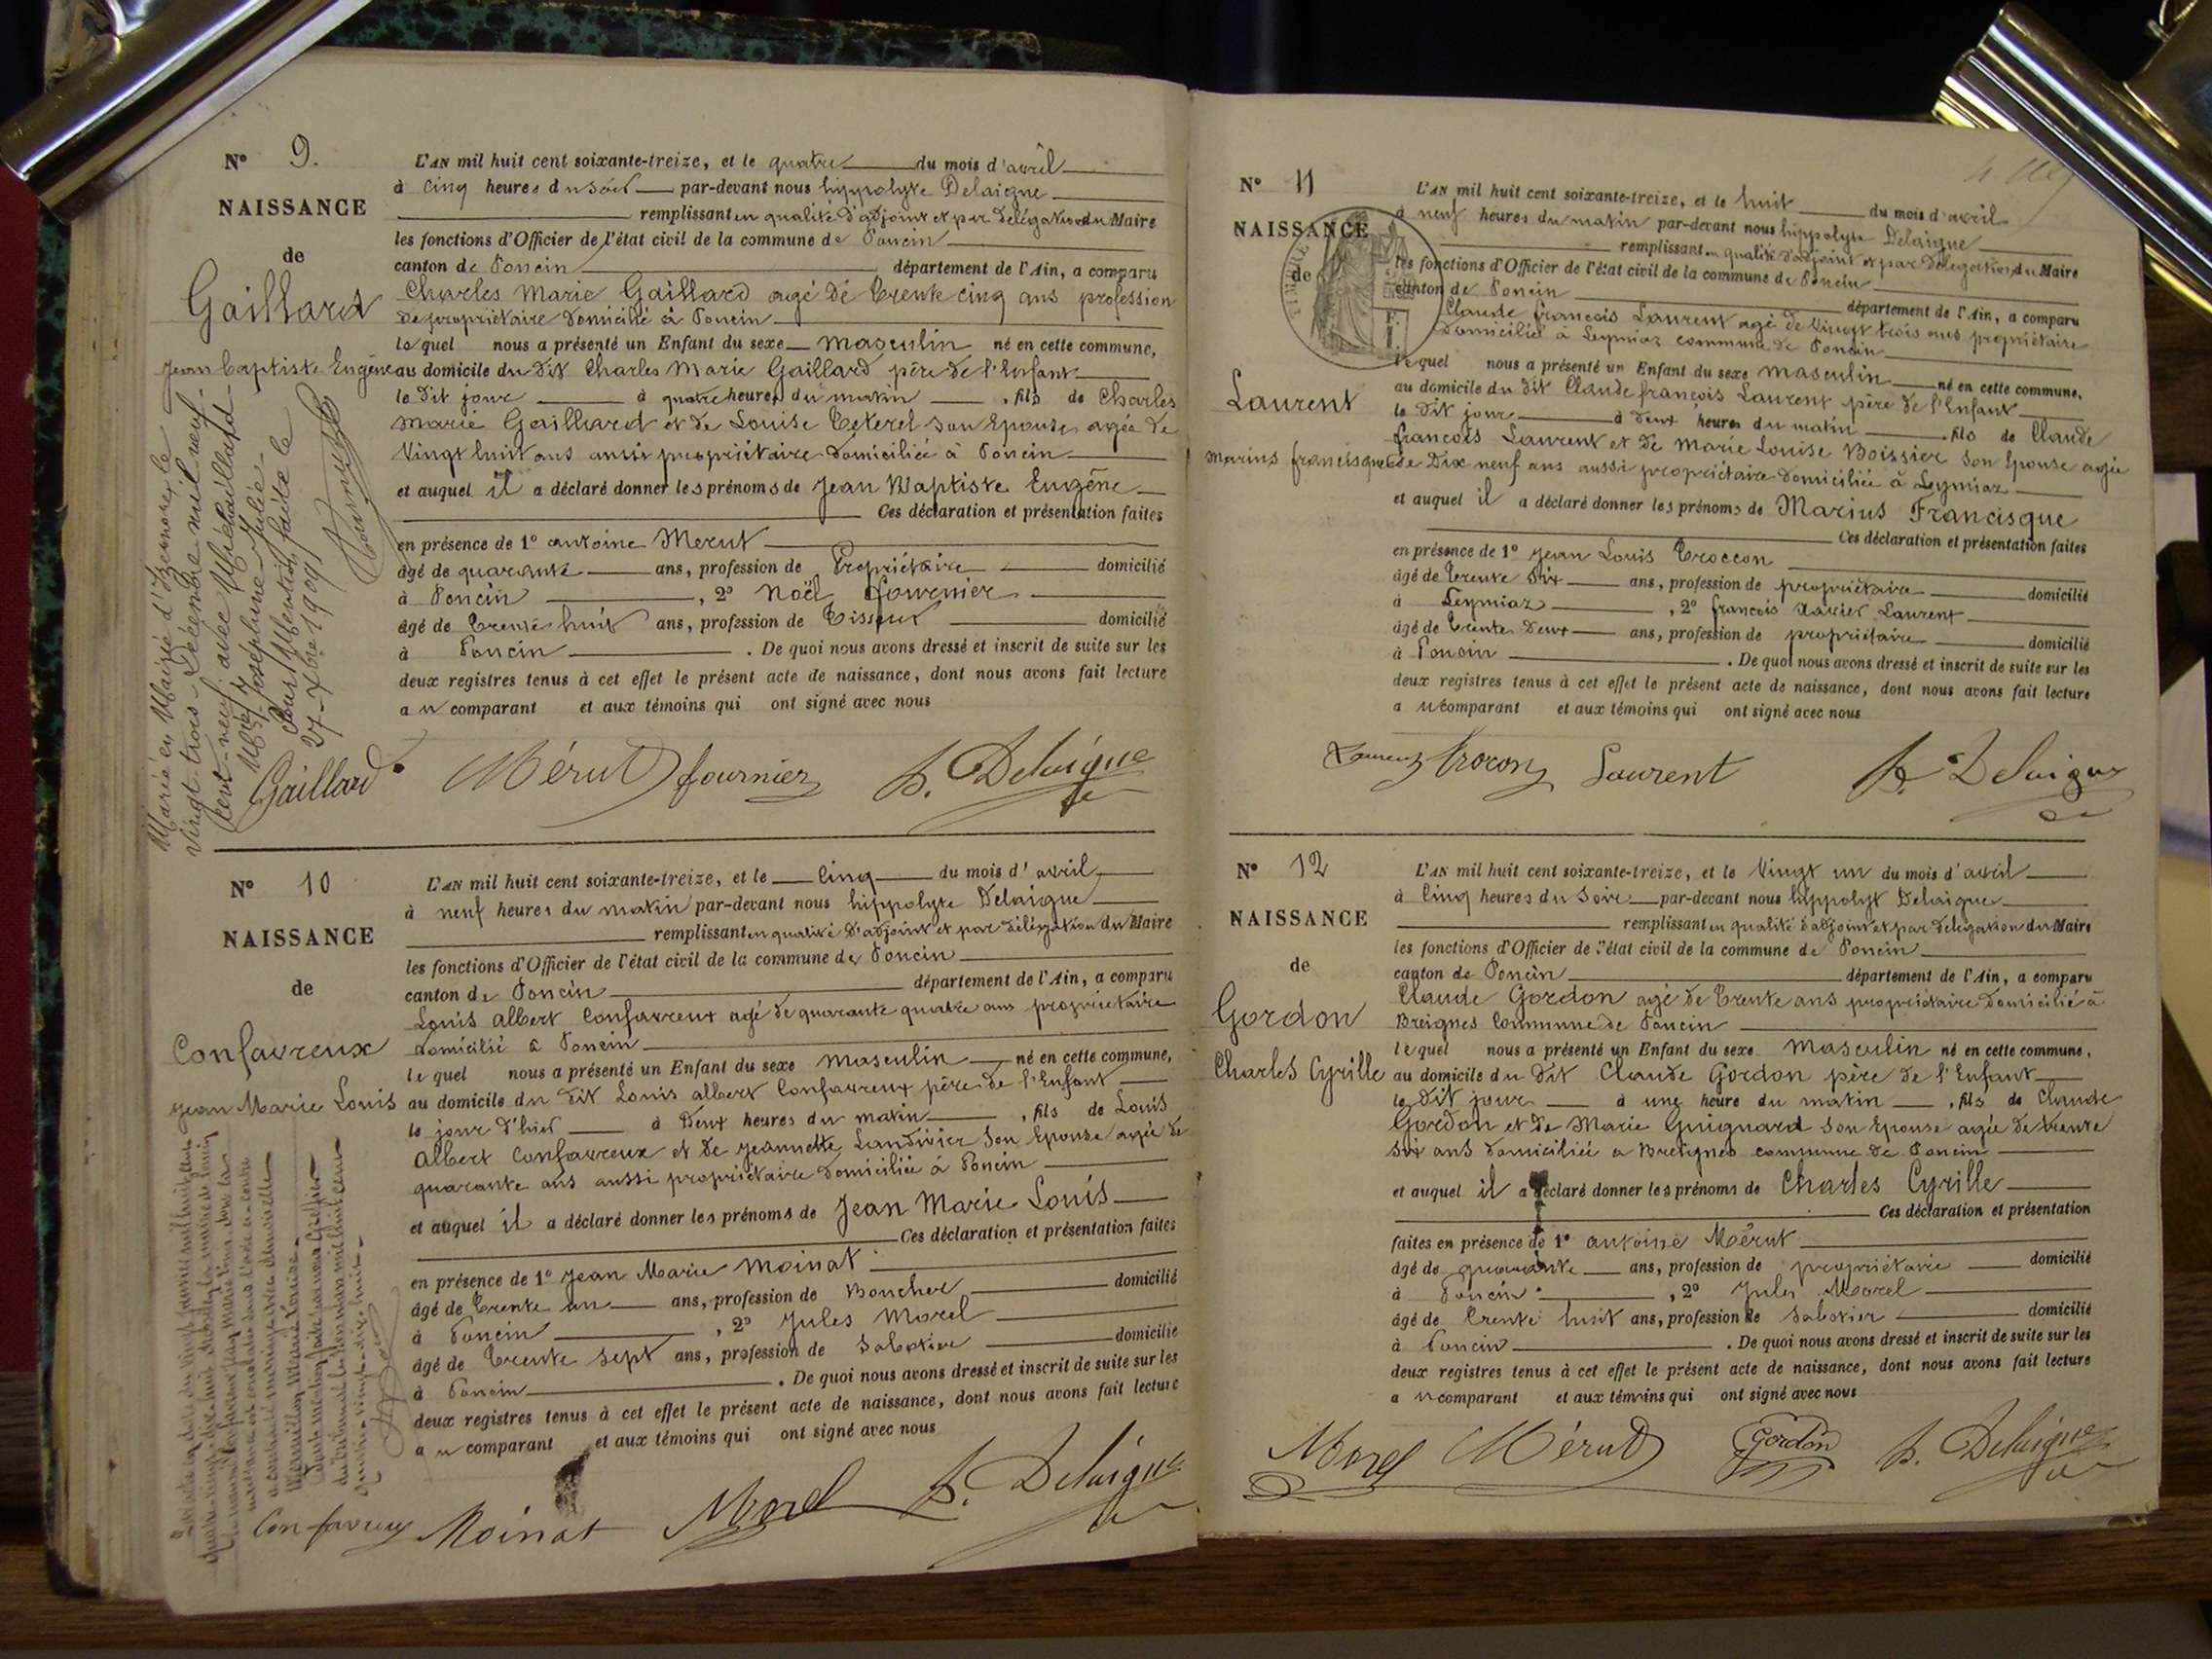 N° 9.
NAISSANCE
de
Gaillard
Jean Baptiste Eugène
L'AN mil huit cent soixante-treize, et le quatre du mois d'avril
à cinq heures du soir par-devant nous hippolyte Delaigue
remplissant en qualité d'adjoint et par délégation du Maire
les fonctions d'Officier de l'état civil de la commune de Poncin
canton de Poncin département de l'Ain, a comparu
Charles Marie Gaillard agé de trente cinq ans profession
de propriétaire domicilié à Poncin
lequel nous a présenté un Enfant du sexe masculin né en cette commune,
au domicile du dit Charles Marie Gaillard père de l'Enfant
le dit jour à quatre heures du matin, fils de Charles
Marie Gaillard et de Louise Teterel son Epouse agée de
Vingt huit ans aussi propriétaire domiciliée à Poncin
et auquel il a déclaré donner les prénoms de Jean Baptiste Eugène
Ces déclaration et présentation faites
en présence de 1° antoine Merut
âgé de quarante ans, profession de Propriétaire domicilié
à Poncin, 2° Noël fournier
âgé de trente huit ans, profession de Tisseur domicilié
à Poncin. De quoi nous avons dressé et inscrit de suite sur les
deux registres tenus à cet effet le présent acte de naissance, dont nous avons fait lecture
au comparant et aux témoins qui ont signé avec nous
Marié en Mairie d'Izernore le
vingt trois Décembre mil neuf
cent neuf avec Michaillard
Marie Joséphine Julie
Pour Mention faite le
27 Xbre 1909
Gaillard Mérut fournier h. Delaigue
N° 10
NAISSANCE
de
Confavreux
Jean Marie Louis
L'AN mil huit cent soixante-treize, et le cinq du mois d'avril
à neuf heures du matin par-devant nous hippolyte Delaigue
remplissant en qualité d'adjoint et par délégation du Maire
les fonctions d'Officier de l'état civil de la commune de Poncin
canton de Poncin département de l'Ain, a comparu
Louis albert Confavreux agé de quarante quatre ans propriétaire
domicilié à Poncin
lequel nous a présenté un Enfant du sexe masculin né en cette commune,
au domicile du dit Louis albert Confavreux père de l'Enfant
le jour d'hier à deux heures du matin, fils de Louis
albert Confavreux et de Jeannette Landivier son Epouse agée de
quarante ans aussi propriétaire domiciliée à Poncin
et auquel il a déclaré donner les prénoms de Jean Marie Louis
Ces déclaration et présentation faites
en présence de 1° Jean Marie Moinat
âgé de trente un ans, profession de Boucher domicilié
à Poncin, 2° Jules Morel
âgé de trente sept ans, profession de sabotier domicilié
à Poncin. De quoi nous avons dressé et inscrit de suite sur les
deux registres tenus à cet effet le présent acte de naissance, dont nous avons fait lecture
au comparant et aux témoins qui ont signé avec nous
Confavreux Moinat Morel h. Delaigue
N° 11
NAISSANCE
de
Laurent
Marius francisque
L'AN mil huit cent soixante-treize, et le huit du mois d'avril
à neuf heures du matin par-devant nous hippolyte Delaigue
remplissant en qualité d'adjoint et par délégation du Maire
les fonctions d'Officier de l'état civil de la commune de Poncin
canton de Poncin département de l'Ain, a comparu
Claude francois Laurent agé de Vingt trois ans propriétaire
domicilié à Leymiaz commune de Poncin
lequel nous a présenté un Enfant du sexe masculin né en cette commune,
au domicile du dit Claude françois Laurent père de l'Enfant
le dit jour à deux heures du matin, fils de Claude
francois Laurent et de Marie Louise Boissier son Epouse agée
de Dix neuf ans aussi propriétaire domiciliée à Leymiaz
et auquel il a déclaré donner les prénoms de Marius Francisque
Ces déclaration et présentation faites
en présence de 1° Jean Louis Troccon
âgé de trente six ans, profession de propriétaire domicilié
à Leymiaz, 2° françois Xavier Laurent
âgé de trente deux ans, profession de propriétaire domicilié
à Poncin. De quoi nous avons dressé et inscrit de suite sur les
deux registres tenus à cet effet le présent acte de naissance, dont nous avons fait lecture
au comparant et aux témoins qui ont signé avec nous
Laurent trocon Laurent h. Delaigue
N° 12
NAISSANCE
de
Gordon
Charles Cyrille
L'AN mil huit cent soixante-treize, et le Vingt un du mois d'avril
à cinq heures du soir par-devant nous hippolyt Delaigue
remplissant en qualité d'adjoint et par délégation du Maire
les fonctions d'Officier de l'état civil de la commune de Poncin
canton de Poncin département de l'Ain, a comparu
Claude Gordon agé de trente ans propriétaire domicilié à
Breignes Commune de Poncin
lequel nous a présenté un Enfant du sexe masculin né en cette commune,
au domicile du dit Claude Gordon père de l'Enfant
le dit jour à une heure du matin, fils de Claude
Gordon et de Marie Guignard son Epouse agée de trente
six ans domiciliée a Bretignes commune de Poncin
et auquel il a déclaré donner les prénoms de Charles Cyrille
Ces déclaration et présentation
faites en présence de 1° antoine Mérut
âgé de quarante ans, profession de propriétaire domicilié
à Poncin, 2° Jules Morel
âgé de trente huit ans, profession de sabotier domicilié
à Poncin. De quoi nous avons dressé et inscrit de suite sur les
deux registres tenus à cet effet le présent acte de naissance, dont nous avons fait lecture
au comparant et aux témoins qui ont signé avec nous
Morel Mérut Gordon h. Delaigue